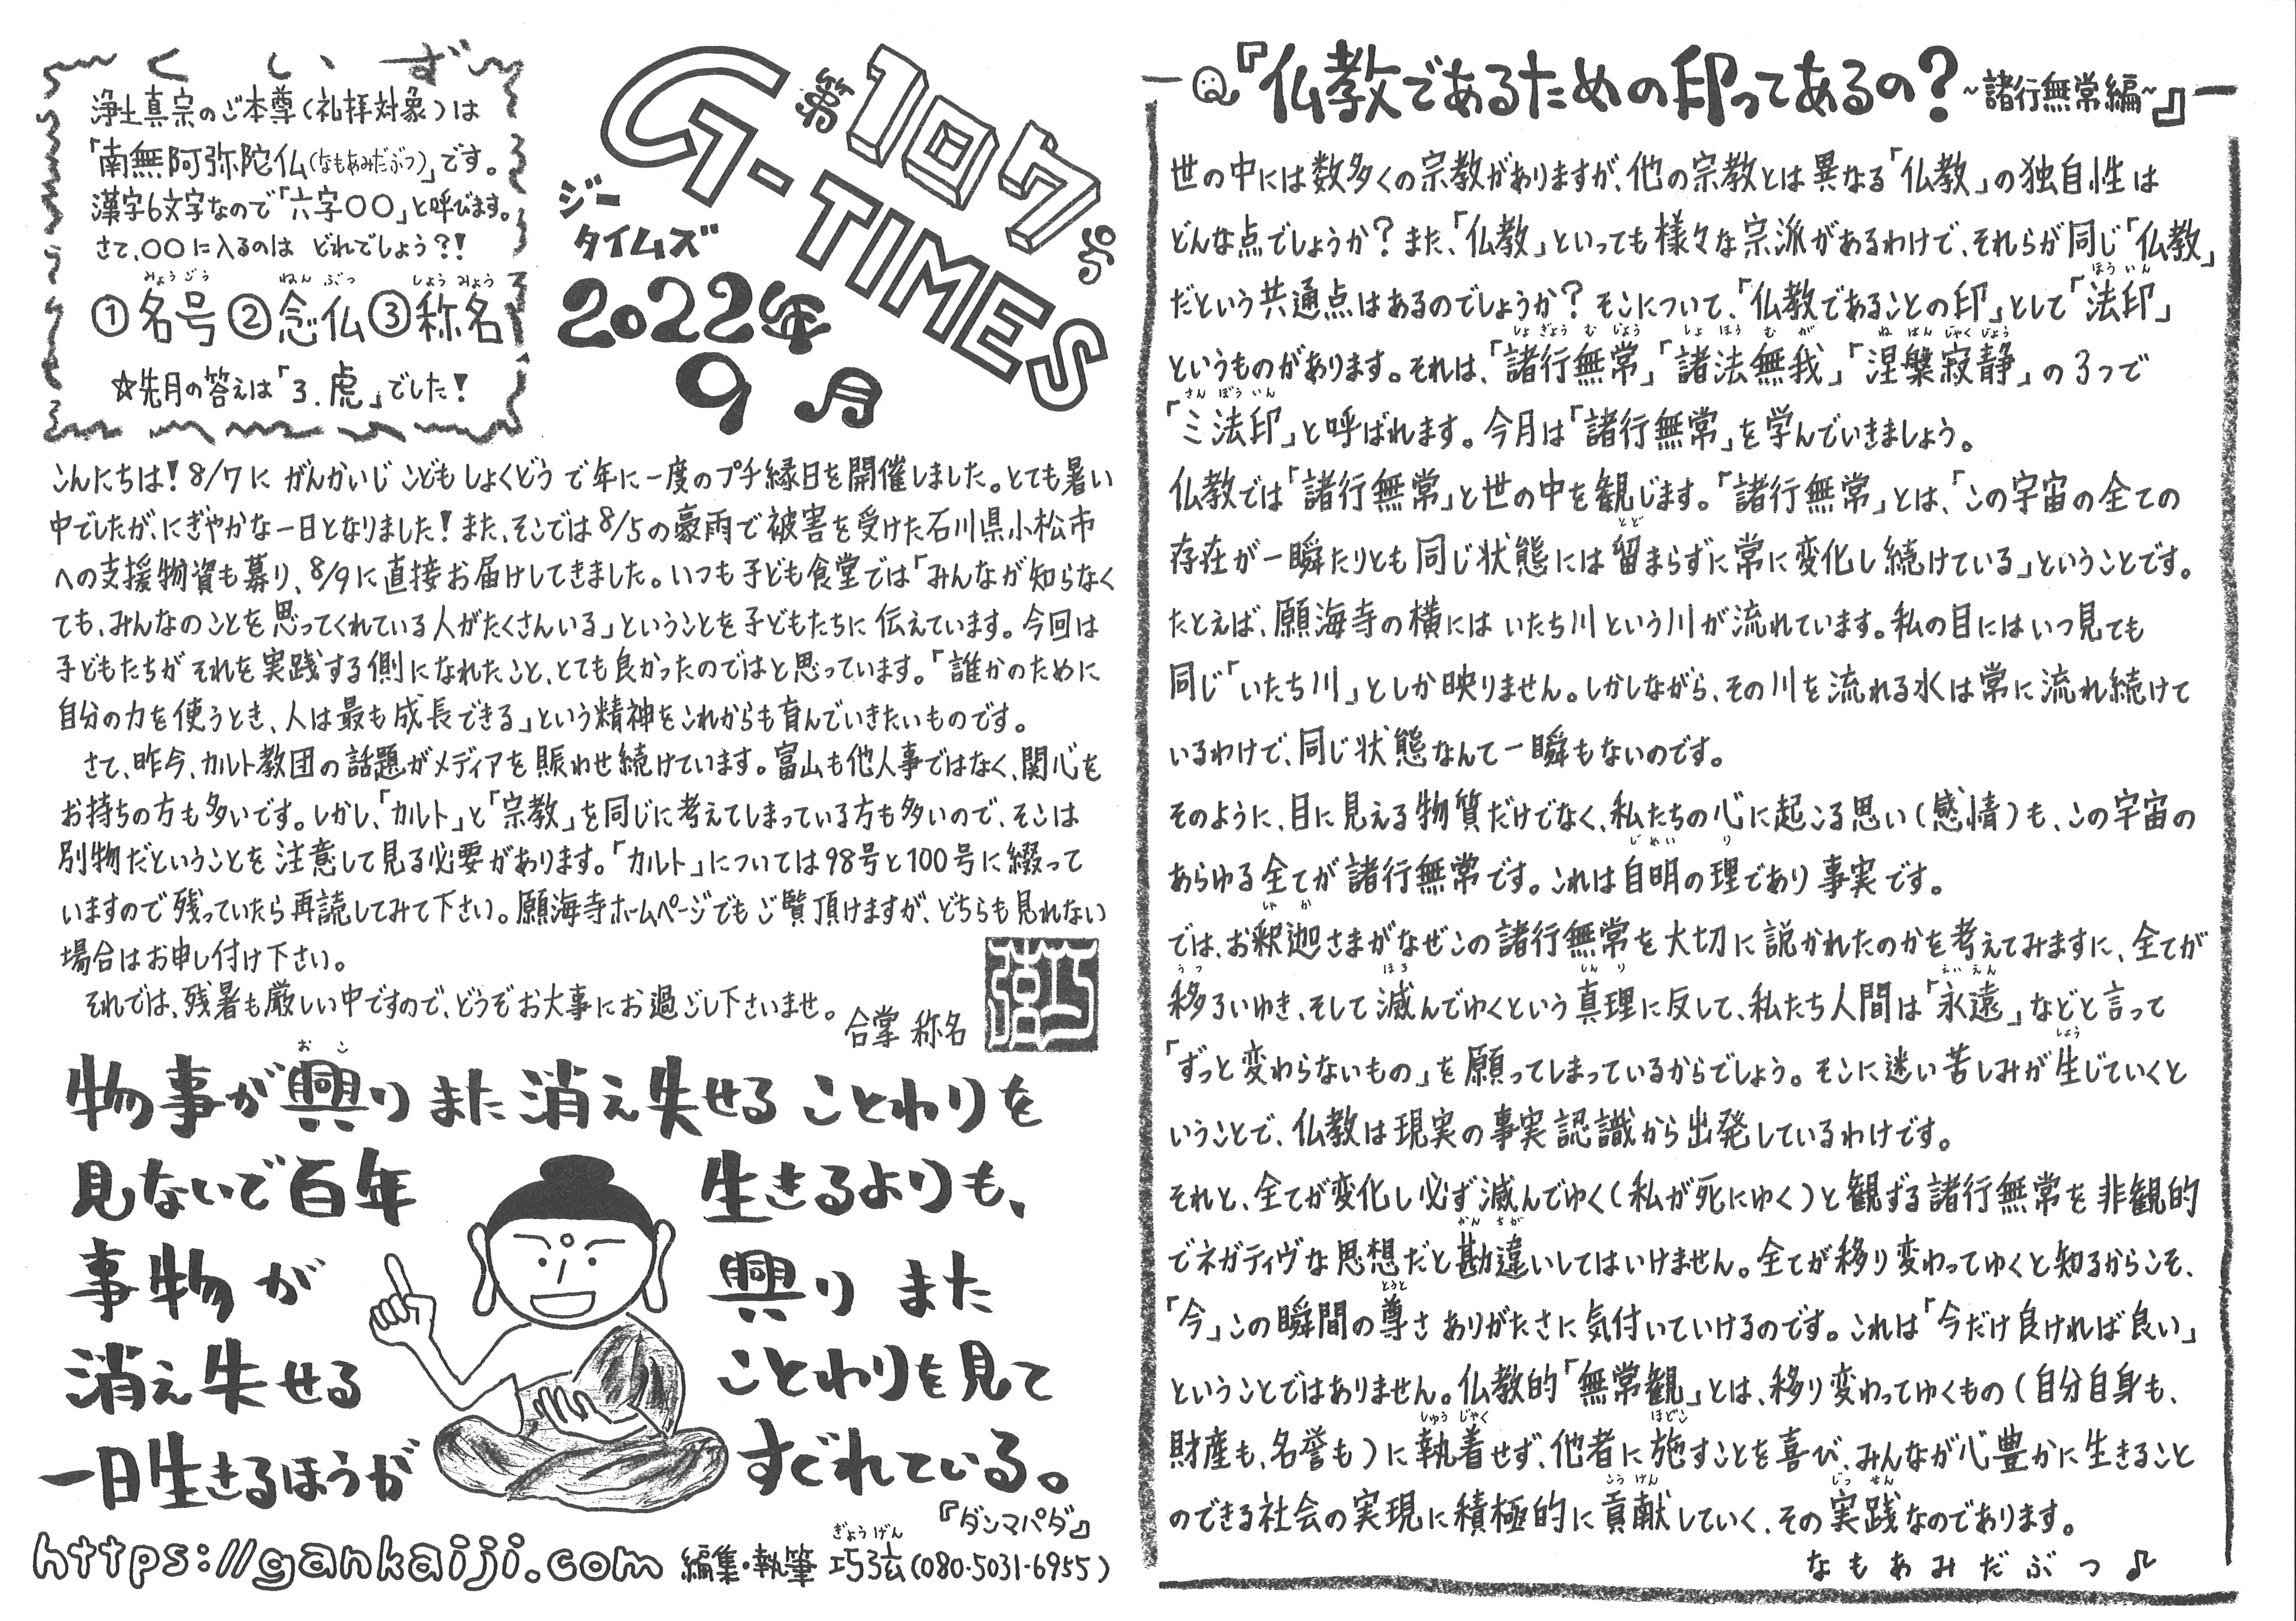 くいず
浄土真宗のご本尊(礼拝対象)は
「南無阿弥陀仏(なもあみだぶつ)」です。
漢字6文字なので「六字〇〇」と呼びます。
さて、〇〇に入るのは どれでしょう?!
みょうごう ねんぶつ しょうみょう
①名号②念仏③称名
☆先月の答えは「3.虎」でした!
第107号
G-TIMES
ジー
タイムズ
2022年
9月
こんにちは!8/7に がんかいじ こども しょくどう で年に一度のプチ縁日を開催しました。とても暑い
中でしたが、にぎやかな一日となりました!また、そこでは8/5の豪雨で被害を受けた石川県小松市
への支援物資も募り、8/9に直接お届けしてきました。いつも子ども食堂では「みんなが知らなく
ても、みんなのことを思ってくれている人がたくさんいる」ということを子どもたちに伝えています。今回は
子どもたちが それを実践する側になれたこと、とても良かったのではと思っています。「誰かのために
自分の力を使うとき、人は最も成長できる」という精神をこれからも育んでいきたいものです。
さて、昨今、カルト教団の話題がメディアを賑わせ続けています。富山も他人事ではなく、関心を
お持ちの方も多いです。しかし、「カルト」と「宗教」を同じに考えてしまっている方も多いので、そこは
別物だということを注意して見る必要があります。「カルト」については98号と100号に綴って
いますので残っていたら再読してみて下さい。願海寺ホームページでもご覧頂けますが、どちらも見れない
場合はお申し付け下さい。
それでは、残暑も厳しい中ですので、どうぞお大事にお過ごし下さいませ。
合掌 称名
巧弦
おこ
物事が興りまた消え失せることわりを
見ないで百年生きるよりも、
事物が興りまた
消え失せることわりを見て
一日生きるほうがすぐれている。
『ダンマパダ』
ぎょうげん
https://gankaiji.com 編集・執筆 巧弦(080-5031-6955)
Q『仏教であるための印ってあるの?~諸行無常編~』
世の中には数多くの宗教がありますが、他の宗教とは異なる「仏教」の独自性は
どんな点でしょうか?また、「仏教」といっても様々な宗派があるわけで、それらが同じ「仏教」
ほういん
だという共通点はあるのでしょうか?そこについて、「仏教であることの印」として「法印」
しょぎょうむじょう しょほうむが ねはんじゃくじょう
というものがあります。それは、「諸行無常」「諸法無我」「涅槃寂静」の3つで
さんぼういん
「三法印」と呼ばれます。今月は「諸行無常」を学んでいきましょう。
仏教では「諸行無常」と世の中を観じます。「諸行無常」とは、「この宇宙の全ての
とど
存在が一瞬たりとも同じ状態には留まらずに常に変化し続けている」ということです。
たとえば、願海寺の横には いたち川という川が流れています。私の目にはいつ見ても
同じ「いたち川」としか映りません。しかしながら、その川を流れる水は常に流れ続けて
いるわけで、同じ状態なんて一瞬もないのです。
そのように、目に見える物質だけでなく、私たちの心に起こる思い(感情)も、この宇宙の
じめい り
あらゆる全てが諸行無常です。これは自明の理であり事実です。
しゃか
では、お釈迦さまがなぜこの諸行無常を大切に説かれたのかを考えてみますに、全てが
うつ ほろ しんり えいえん
移ろいゆき、そして滅んでゆくという真理に反して、私たち人間は「永遠」などと言って
しょう
「ずっと変わらないもの」を願ってしまっているからでしょう。そこに迷い苦しみが生じていくと
いうことで、仏教は現実の事実認識から出発しているわけです。
それと、全てが変化し必ず滅んでゆく(私が死にゆく)と観ずる諸行無常を非観的
かんちが
でネガティヴな思想だと勘違いしてはいけません。全てが移り変わってゆくと知るからこそ、
とうと
「今」この瞬間の尊さありがたさに気付いていけるのです。これは「今だけ良ければ良い」
ということではありません。仏教的「無常観」とは、移り変わってゆくもの(自分自身も、
しゅうじゃく ほどこ
財産も、名誉も)に執着せず、他者に施すことを喜び、みんなが心豊かに生きること
こうけん じっせん
のできる社会の実現に積極的に貢献していく、その実践なのであります。
なもあみだぶつ♪